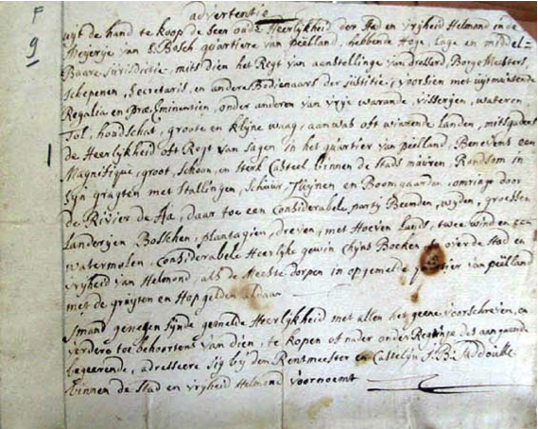 F
9
advertentie
uijt de hand te koop de seer oude Heerlijkheid der stad en vrijheid Helmond in de
Meyerije van s Bosch quartiere van peelland, hebbende Hoge, lage en middel=
Baare jurisdictie, mitsdien het Regt van aanstellinge van drossard, Borgemeesters,
schepenen, Secretaris, en andere Bedienaars der justitie; voorsien met uijtmuntende
Regalia en Præeminentien, onder anderen van vrije warande, visserijen, wateren,
Tol, hoodschat, groote en klijne waag, aanwas oft winnende landen, mitsgaders
de Heerlijkheid oft Regt van Jagen in het quartier van peelland, Benevens een
Magnifique, groot, schoon, en sterk Casteel binnen de stads mueren, Rondsom in
sijn gragten met stallingen, schuur, Tuijnen en Boomgaarden omringt door
de Rivier de Aa, daar toe een Considerabele party Beemden, wyden, groessen
Landerijen Bosschen, plantagien, dreven, met Hoeven Lands, twee wind en een
watermolen, considerabele Heerlijke gewin Chijns Boeken so over de stad en
vrijheid van Helmond, als de Meeste dorpen in opgemelde quartier van peelland
met de gruijten en Hopgelden aldaar
Jmand genegen sijnde gemelde Heerlijkheid met allen het geene voorschreven, en
verdere toe behoorten van dien, te kopen of nader onder Regtinge des aangaande
begeerende, adresseere sig bij den Rentmeester en Casteleijn J. B.
binnen de stad en vrijheid Helmond voornoemt